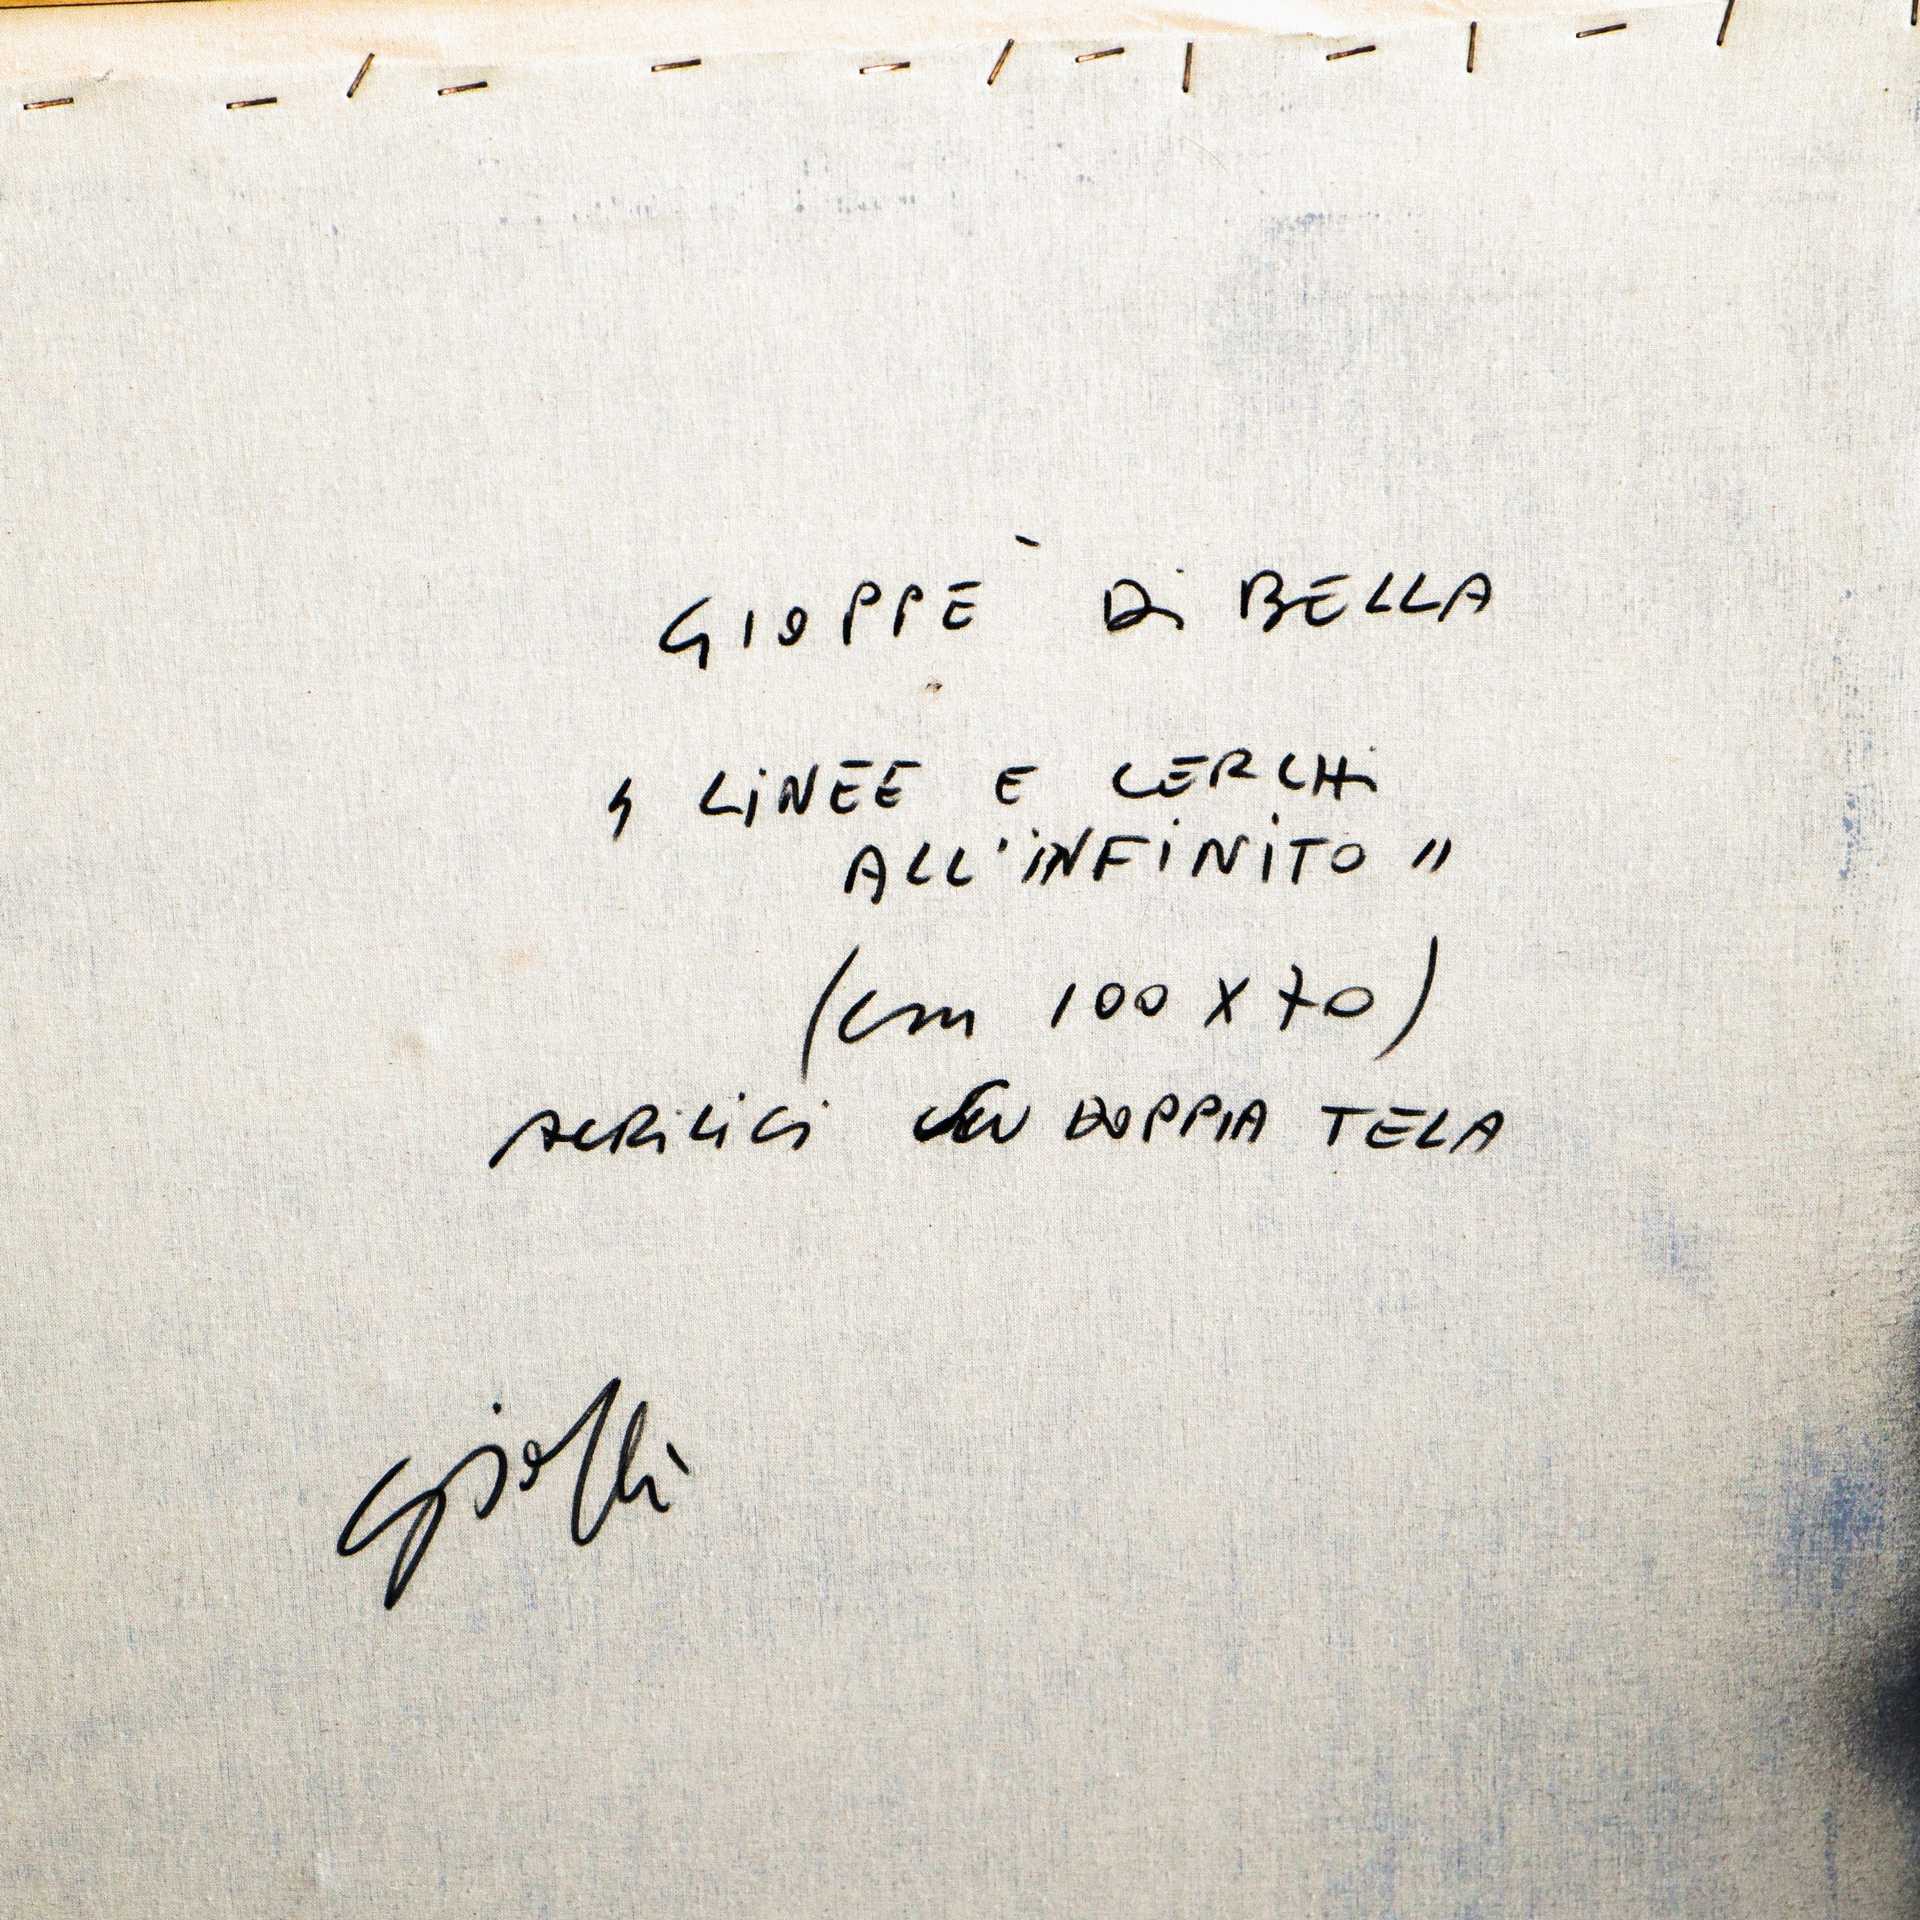 GIOPPE` Di BELLA
" LiNEE E CERCHi
ALL'iNFiNiTO "
(cm 100 X 70)
ACRiLiCi SU DOPPIA TELA